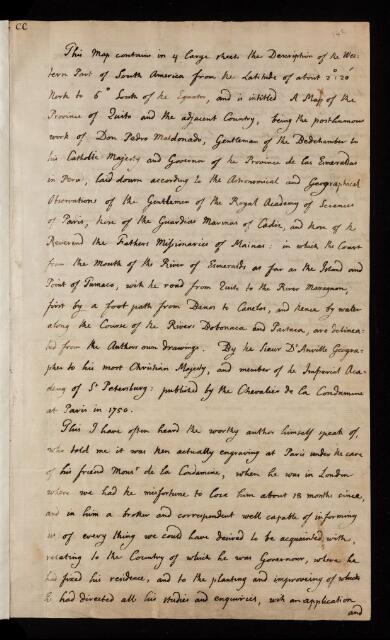 CC
This Map contains in 4 large sheets the Description of the Wes-
tern Part of South America from the Latitude of about 2°: 20'
North to 6° South of the Equator, and is intitled A Map of the
Province of Quito and the adjacent Country, being the posthumous
work of Don Pedro Maldonado, Gentleman of the Bedchamber to
his Catholic Majesty and Governor of the Province de las Esmeradas
in Peru, laid down according to the Astronomical and Geographical
Observations of the Gentlemen of the Royal Academy of Sciences
of Paris, those of the Guardias Marinas of Cadiz, and those of the
Reverend the Fathers Missionaries of Mainas: in which the Coast
from the Mouth of the River of Esmeralds as far as the Island and
Point of Tumaco, with the road from Quito to the River Maragnon,
first by a foot path from Banos to Canelos, and thence by water
along the Course of the Rivers Bobonaca and Pastaca, are delinea-
ted from the Authors own drawings. By the Sieur D'Anville Geogra-
pher to his most Christian Majesty, and member of the Imperial Aca-
demy of St Petersburg: published by the Chevalier de la Condamine
at Paris in 1750.
This I have often heard the worthy author himself speak of,
was told me it was then actually engraving at Paris under the care
of his friend Monsr de la Condamine, when he was in London
where we had the misfortune to lose him about 18 months since,
and in him a brother and correspondent well capable of informing
us of every thing we could have desired to be acquainted with,
relating to the Country of which he was Governour, where he
had fixed his residence, and to the planting and improveing of which
he had directed all his studies and enquiries, with an application
and